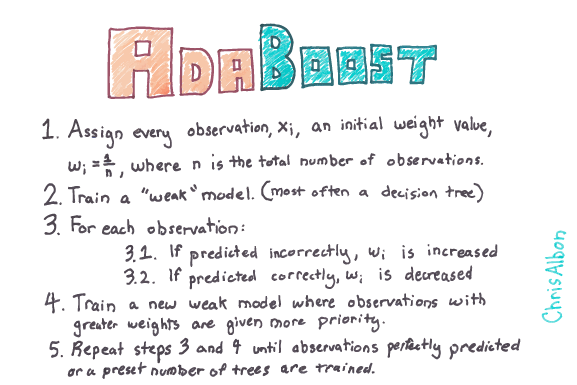 ADABOOST
1. Assign every observation, xᵢ, an initial weight value,
wᵢ = 1/n, where n is the total number of observations.
2. Train a "weak" model. (most often a decision tree)
3. For each observation:
3.1. If predicted incorrectly, wᵢ is increased
3.2. If predicted correctly, wᵢ is decreased
4. Train a new weak model where observations with
greater weights are given more priority.
5. Repeat steps 3 and 4 until observations perfectly predicted
or a preset number of trees are trained.
ChrisAlbon